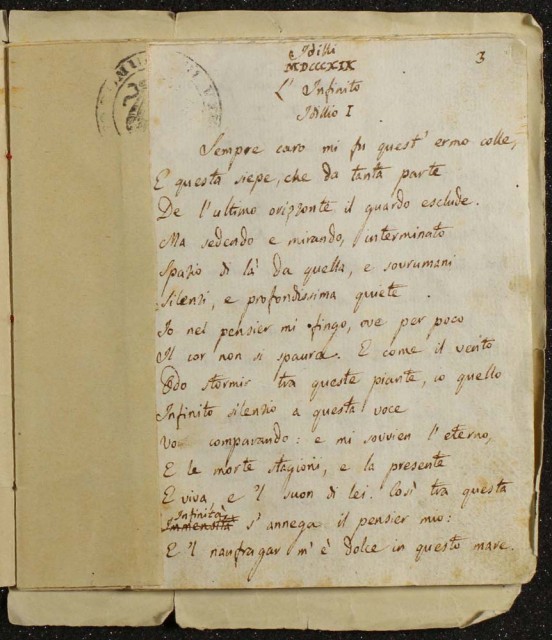 3
Idilli
MDCCCXIX
L' Infinito
Idillio I
Sempre caro mi fu quest' ermo colle,
E questa siepe, che da tanta parte
De l'ultimo orizzonte il guardo esclude.
Ma sedendo e mirando, interminato
Spazio di là da quella, e sovrumani
Silenzi, e profondissima quiete
Io nel pensier mi fingo, ove per poco
Il cor non si spaura. E come il vento
Odo stormir tra queste piante, io quello
Infinito silenzio a questa voce
Vo comparando: e mi sovvien l'eterno,
E le morte stagioni, e la presente
E viva, e 'l suon di lei. Così tra questa
Infinità
Immensità s'annega il pensier mio:
E 'l naufragar m'è dolce in questo mare.